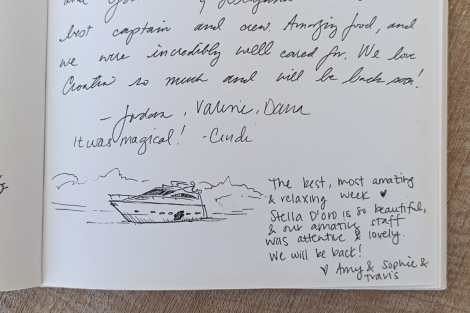 best captain and crew. Amazing food, and
we were incredibly well cared for. We love
Croatia so much and will be back soon!
- Jordan, Valerie, Dana
It was magical! - Cindi
The best, most amazing
& relaxing week ♥
Stella D'oro is so beautiful,
& our amazing staff
was attentive & lovely.
We will be back!
♥ Amy & Sophie &
Travis